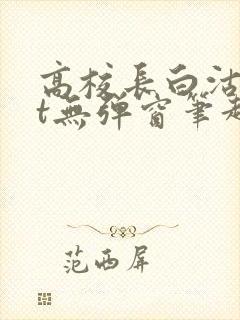 高校長白沽
t無彈窗筆趣
范西屏